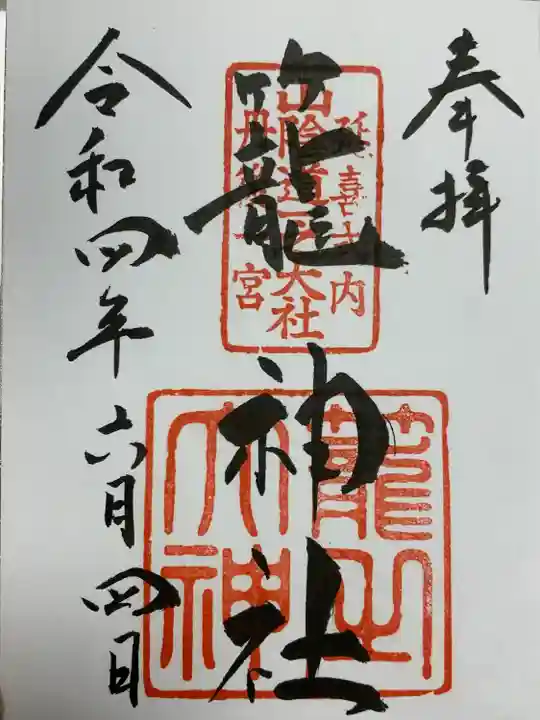 奉拝
延喜式内
山陰道一之大社
丹後一宮
籠神社
籠之大神
令和四年六月四日